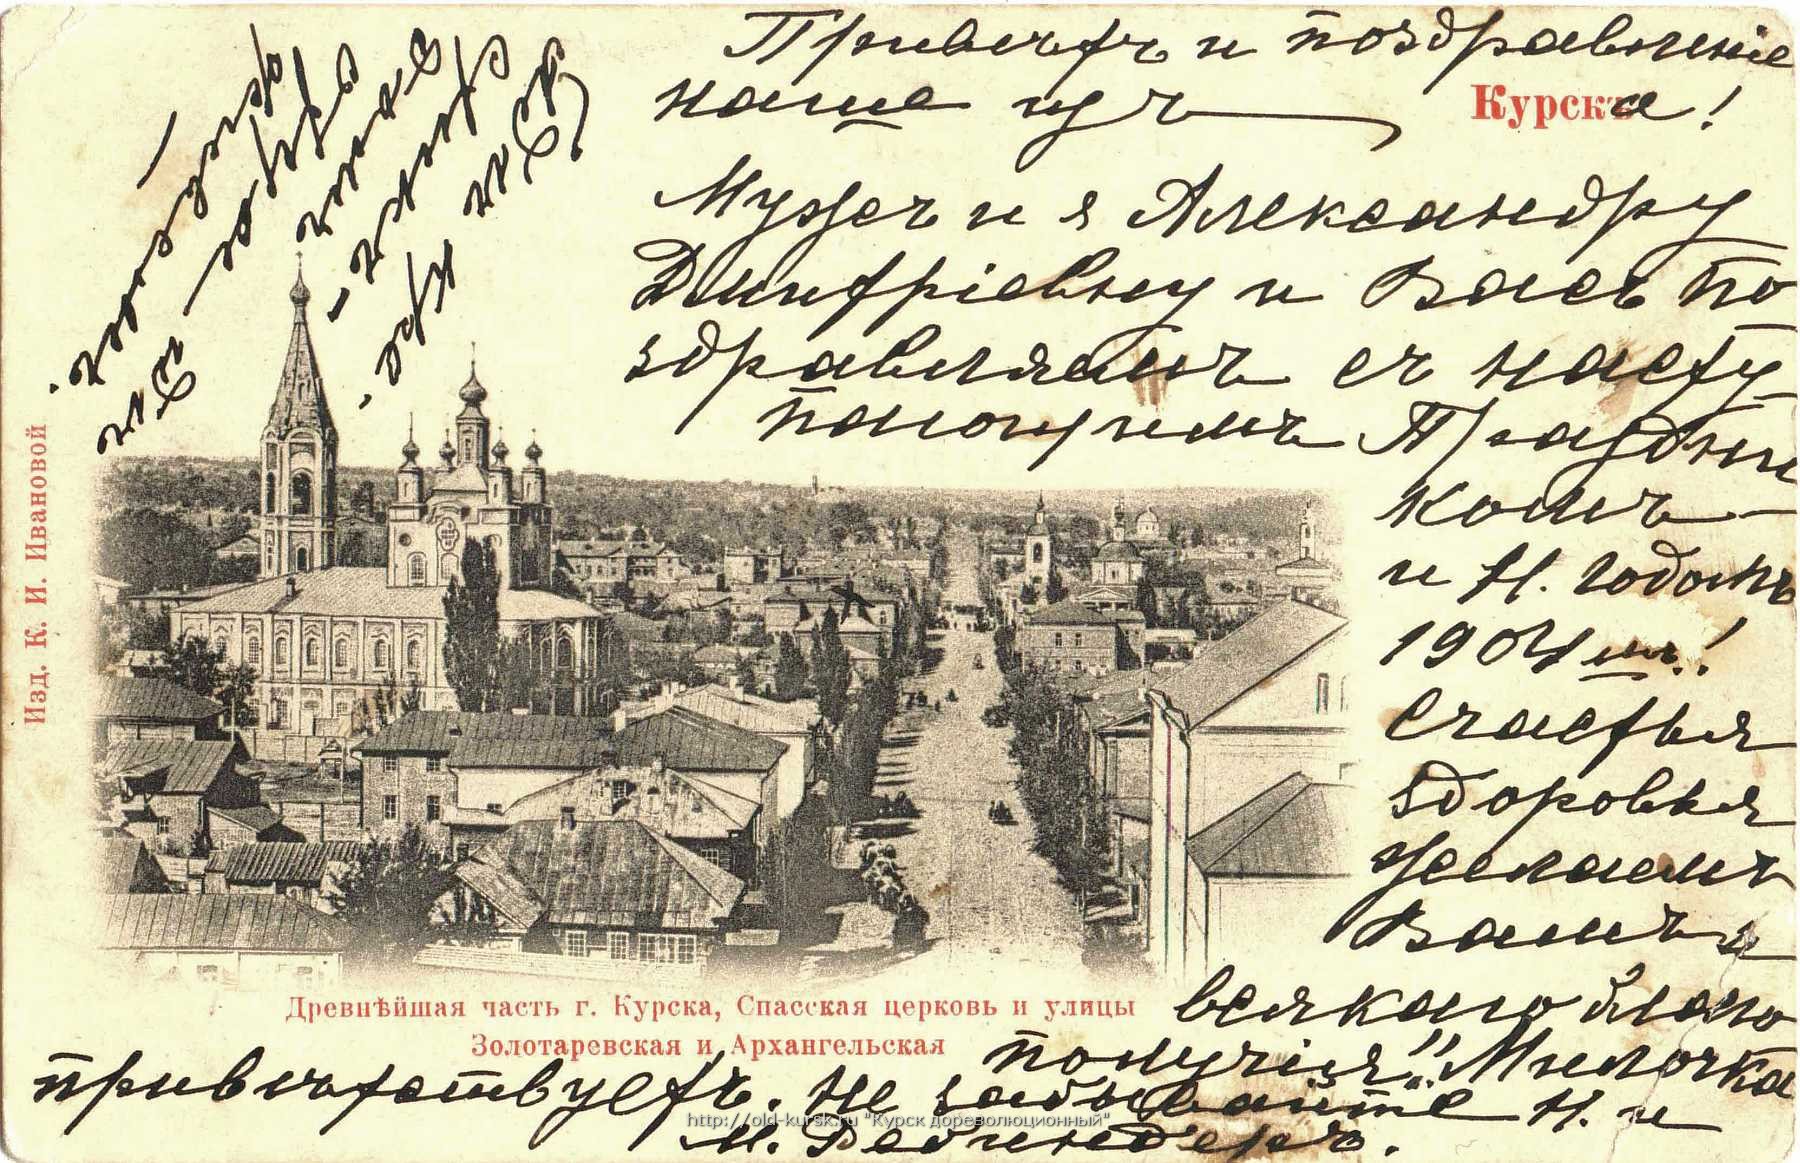 Приветъ и поздравленіе
наше изъ Курскъ а!
Мужъ и я Александру
Дмитріевну и Васъ по
здравляемъ съ насту
пающимъ Праздни
комъ
и Н. годомъ
1904 мъ!
Счастья
здоровья
желаемъ
Вамъ и
всякаго благо
получія!! Милочка
привѣтствуетъ. Не забывайте Н. и
М.
Изд. К. И. Ивановой
Древнѣйшая часть г. Курска, Спасская церковь и улицы
Золотаревская и Архангельская
http://old-kursk.ru "Курск дореволюционный"